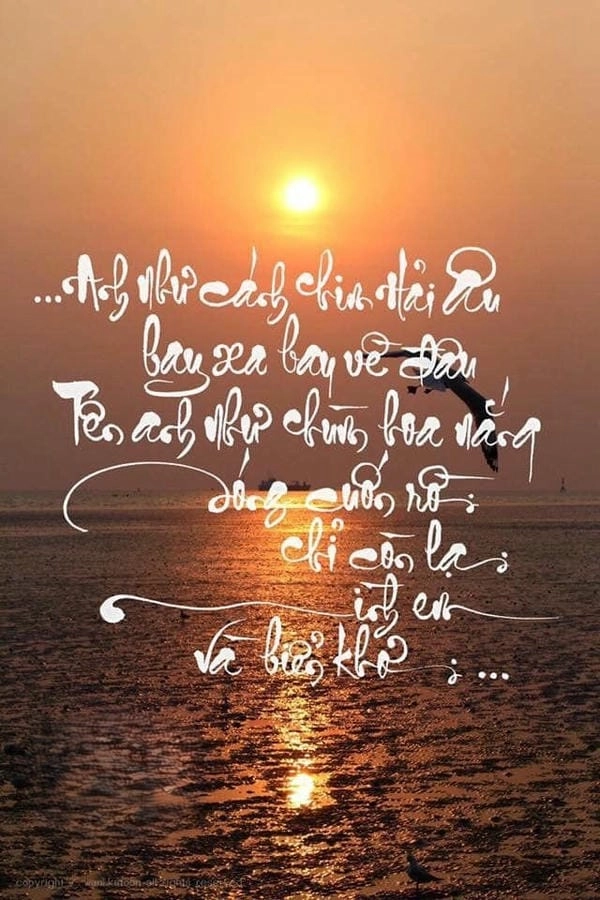 ...Anh như cánh chim Hải Âu
bay xa bay về đâu
Tên anh như chùm hoa nắng
Sóng cuốn rồi
chỉ còn lại
mình em
và biển khơi ...
copyright all rights reserved